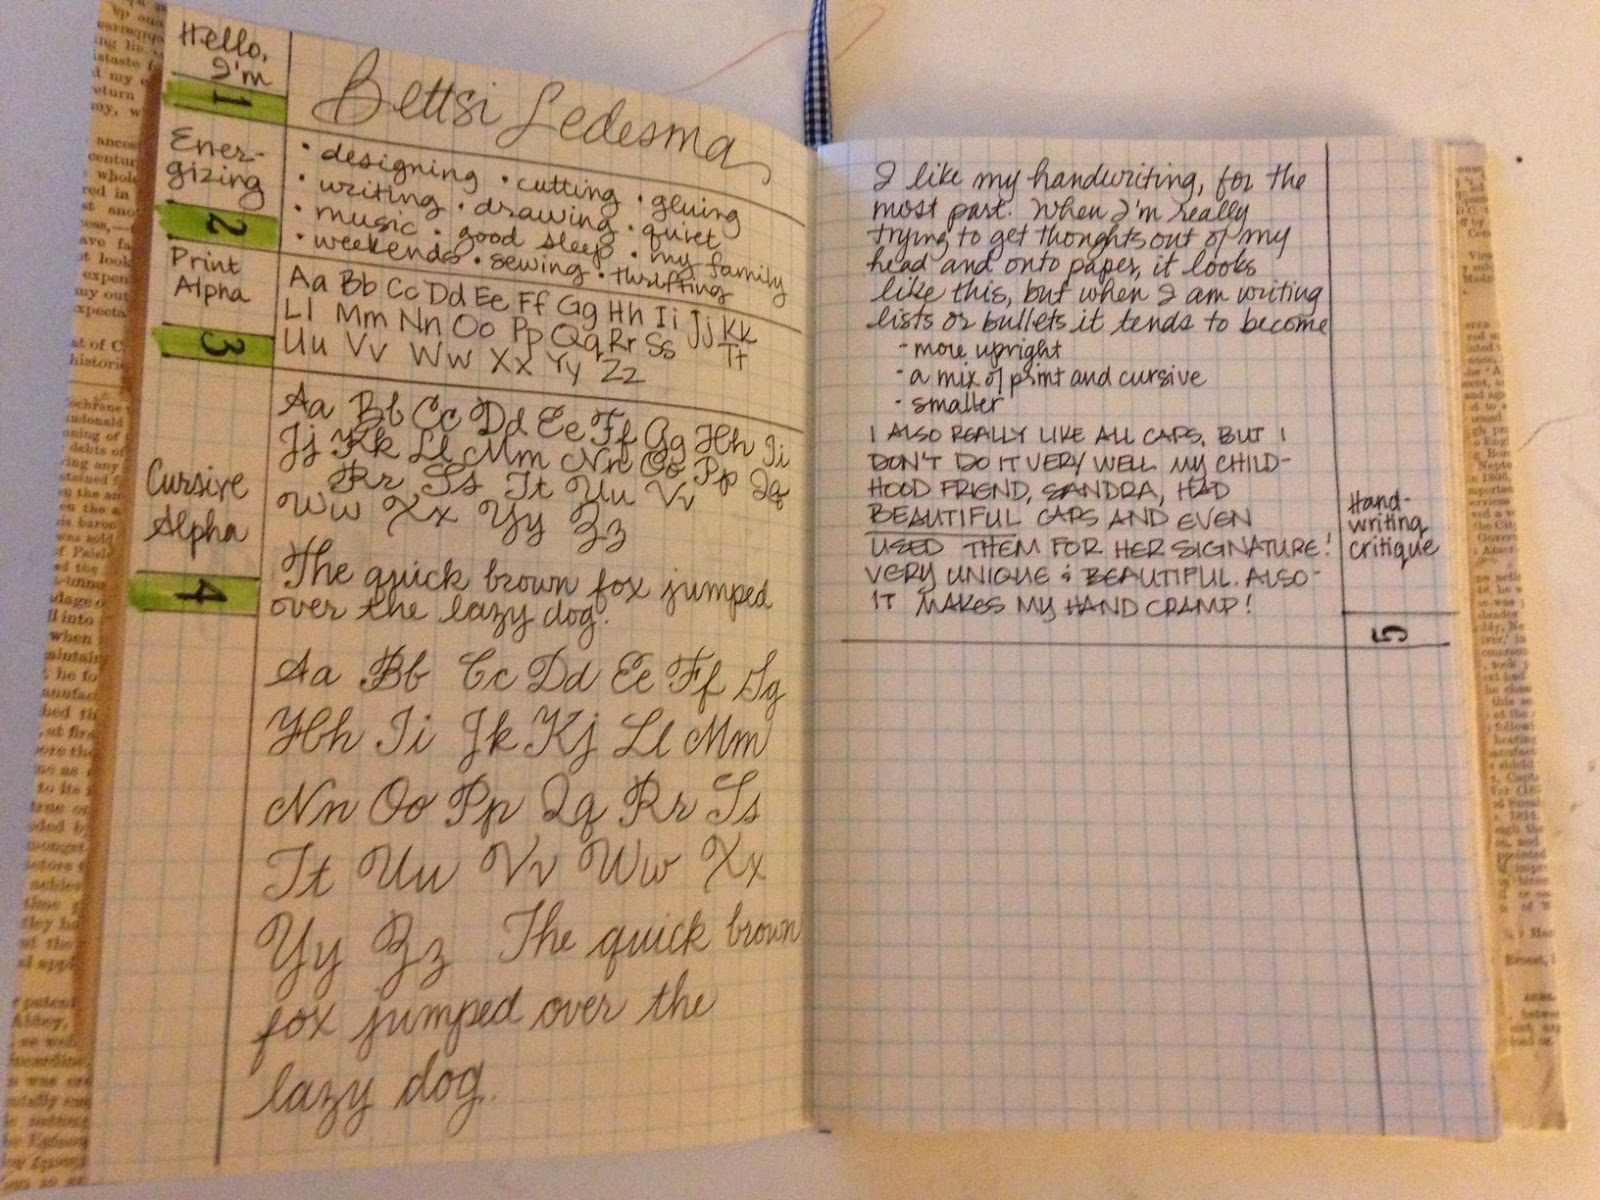 Hello,
I'm
1
Bettsi Ledesma
Ener-
gizing
2
• designing • cutting • gluing
• writing • drawing • quiet
• music • good sleep • my family
• weekends • sewing • thrifting
Print
Alpha
3
Aa Bb Cc Dd Ee Ff Gg Hh Ii Jj Kk
Ll Mm Nn Oo Pp Qq Rr Ss Tt
Uu Vv Ww Xx Yy Zz
Cursive
Alpha
4
Aa Bb Cc Dd Ee Ff Gg Hh Ii
Jj Kk Ll Mm Nn Oo Pp Qq
Rr Ss Tt Uu Vv
Ww Xx Yy Zz
The quick brown fox jumped
over the lazy dog.
Aa Bb Cc Dd Ee Ff Gg
Hh Ii Jk Kj Ll Mm
Nn Oo Pp Qq Rr Ss
Tt Uu Vv Ww Xx
Yy Zz The quick brown
fox jumped over the
lazy dog.
I like my handwriting, for the
most part. When I'm really
trying to get thoughts out of my
head and onto paper, it looks
like this, but when I am writing
lists or bullets it tends to become
- more upright
- a mix of print and cursive
- smaller
I ALSO REALLY LIKE ALL CAPS, BUT I
DON'T DO IT VERY WELL. MY CHILD-
HOOD FRIEND, SANDRA, HAD
BEAUTIFUL CAPS AND EVEN
USED THEM FOR HER SIGNATURE!
VERY UNIQUE & BEAUTIFUL. ALSO-
IT MAKES MY HAND CRAMP!
Hand-
writing
critique
5